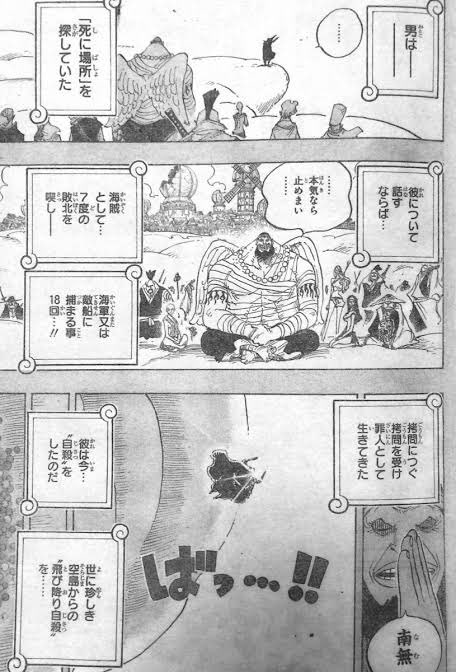 男は━━
………
「死に場所」を
探していた
彼について
話す
ならば…
………
本気なら
止めまい
海賊
として…
7度の
敗北を
喫し━
海軍又は
敵船に
捕まる事
18回…!!
拷問につぐ
拷問を受け
罪人として
生きてきた
南無
ばっ…!!
彼は今…
〝自殺〟を
したのだ
世に珍しき
空島からの
〝飛び降り自殺〟
を……